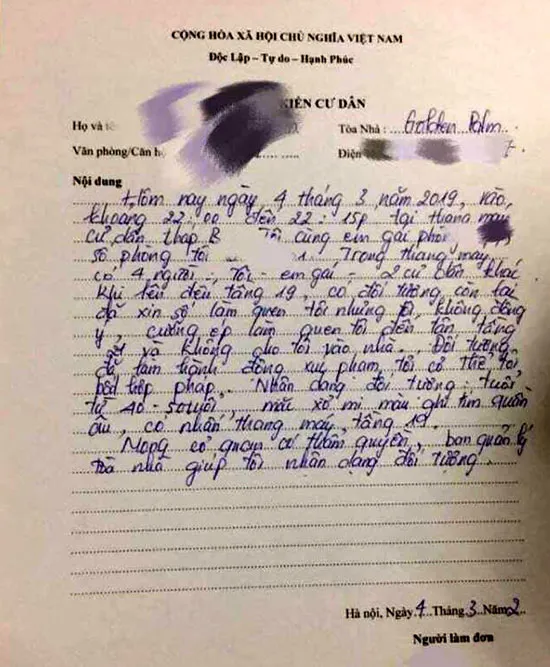 CỘNG HÒA XÃ HỘI CHỦ NGHĨA VIỆT NAM
Độc Lập – Tự do – Hạnh Phúc
KIẾN CƯ DÂN
Họ và tê Tòa Nhà : Golden Palm
Văn phòng/Căn h Điện
Nội dung
Hôm nay ngày 4 tháng 3 năm 2019, vào
khoảng 22:00 đến 22:15p tại thang máy
cư dân tháp B Tôi cùng em gái
số phòng tôi Trong thang máy
có 4 người: Tôi - em gái - 2 cư dân khác
Khi lên đến tầng 19, có đối tượng còn lại
đã xin số làm quen tôi nhưng tôi không đồng
ý, cưỡng ép làm quen tôi đến tận tầng
và không cho tôi vào nhà. Đối tượng
đã làm hành động xúc phạm tôi có thể tôi
hợp pháp. Nhân dạng đối tượng: tuổi
từ 40-50 tuổi, mặc sơ mi màu ghi tím quần
âu, có nhấn thang máy tầng 19.
Mong cơ quan có thẩm quyền, ban quản lý
tòa nhà giúp tôi nhân dạng đối tượng.
Hà nội, Ngày 4 Tháng 3 Năm 2
Người làm đơn